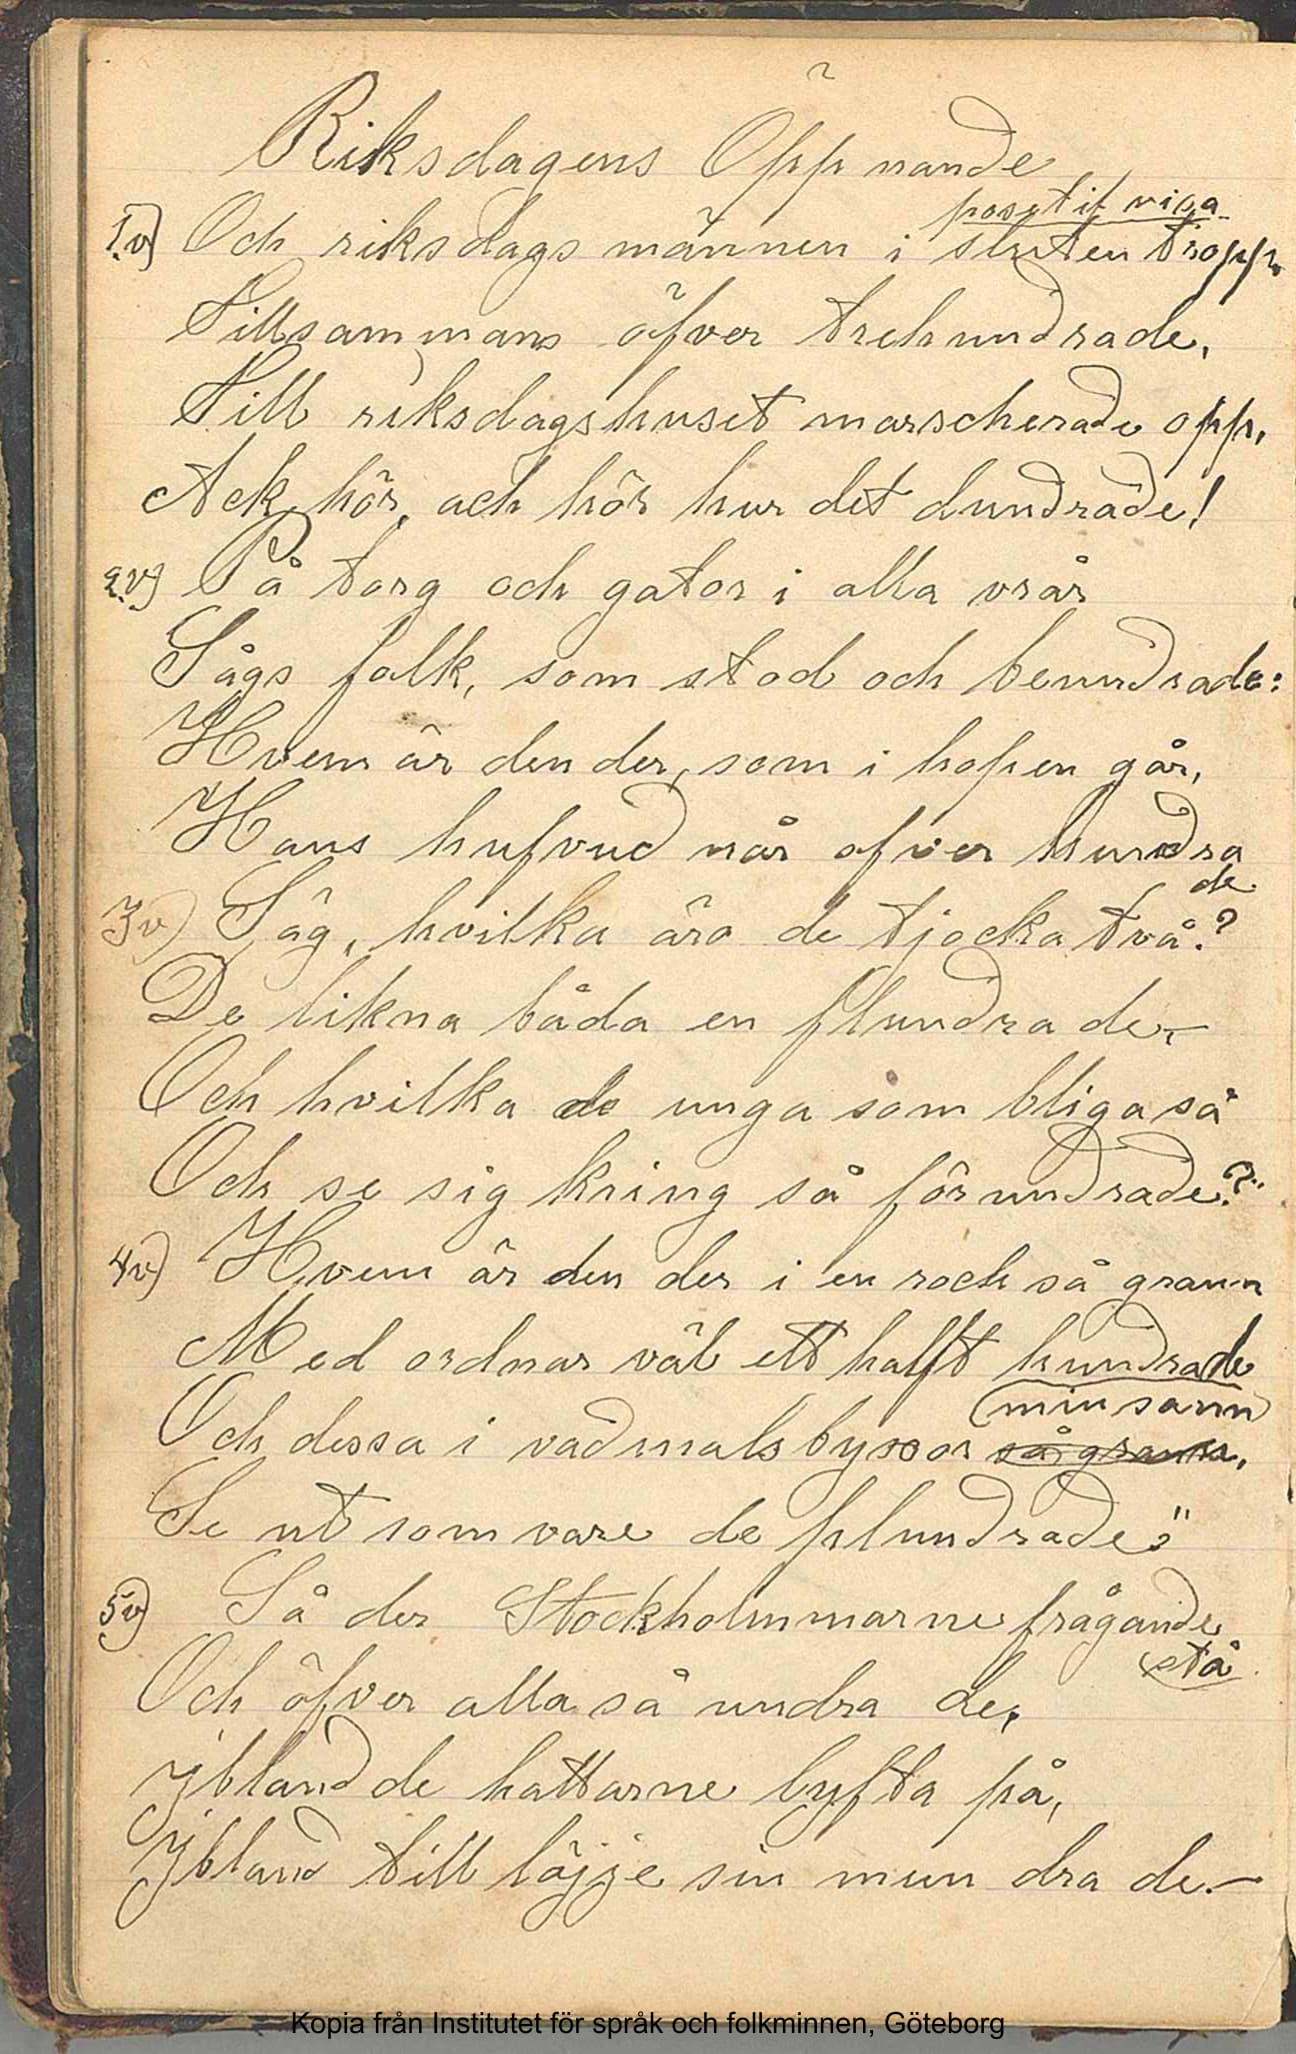 Riksdagens Öppnande
posetif visa
1.v) Och riksdagsmännen i sluten tropp.
Tillsammans öfver trehundrade,
Till riksdagshuset marscherade opp,
Ack hör, ach hör hur det dundrade!
2.v) På torg och gator i alla vrår
Sågs folk, som stod och beundrade:
Hvem är den der, som i hopen går,
Hans hufvud når öfver hundra
de
3v) Säg, hvilka äro de tjocka två?
De likna båda en flundra de,-
Och hvilka de unga som bliga så
Och se sig kring så förundrade?"
4v) Hvem är den der i en rock så grann
Med ordnar väl ett halft hundrade
(min sann)
Och dessa i vadmalsbyxor så grann,
Se ut som vore de plundrade."
5v) Så der Stockholmmarne frågande
stå
Och öfver alla så undra de,
Ibland de hattarne lyfta på,
Ibland till löjje sin mun dra de.-
Kopia från Institutet för språk och folkminnen, Göteborg